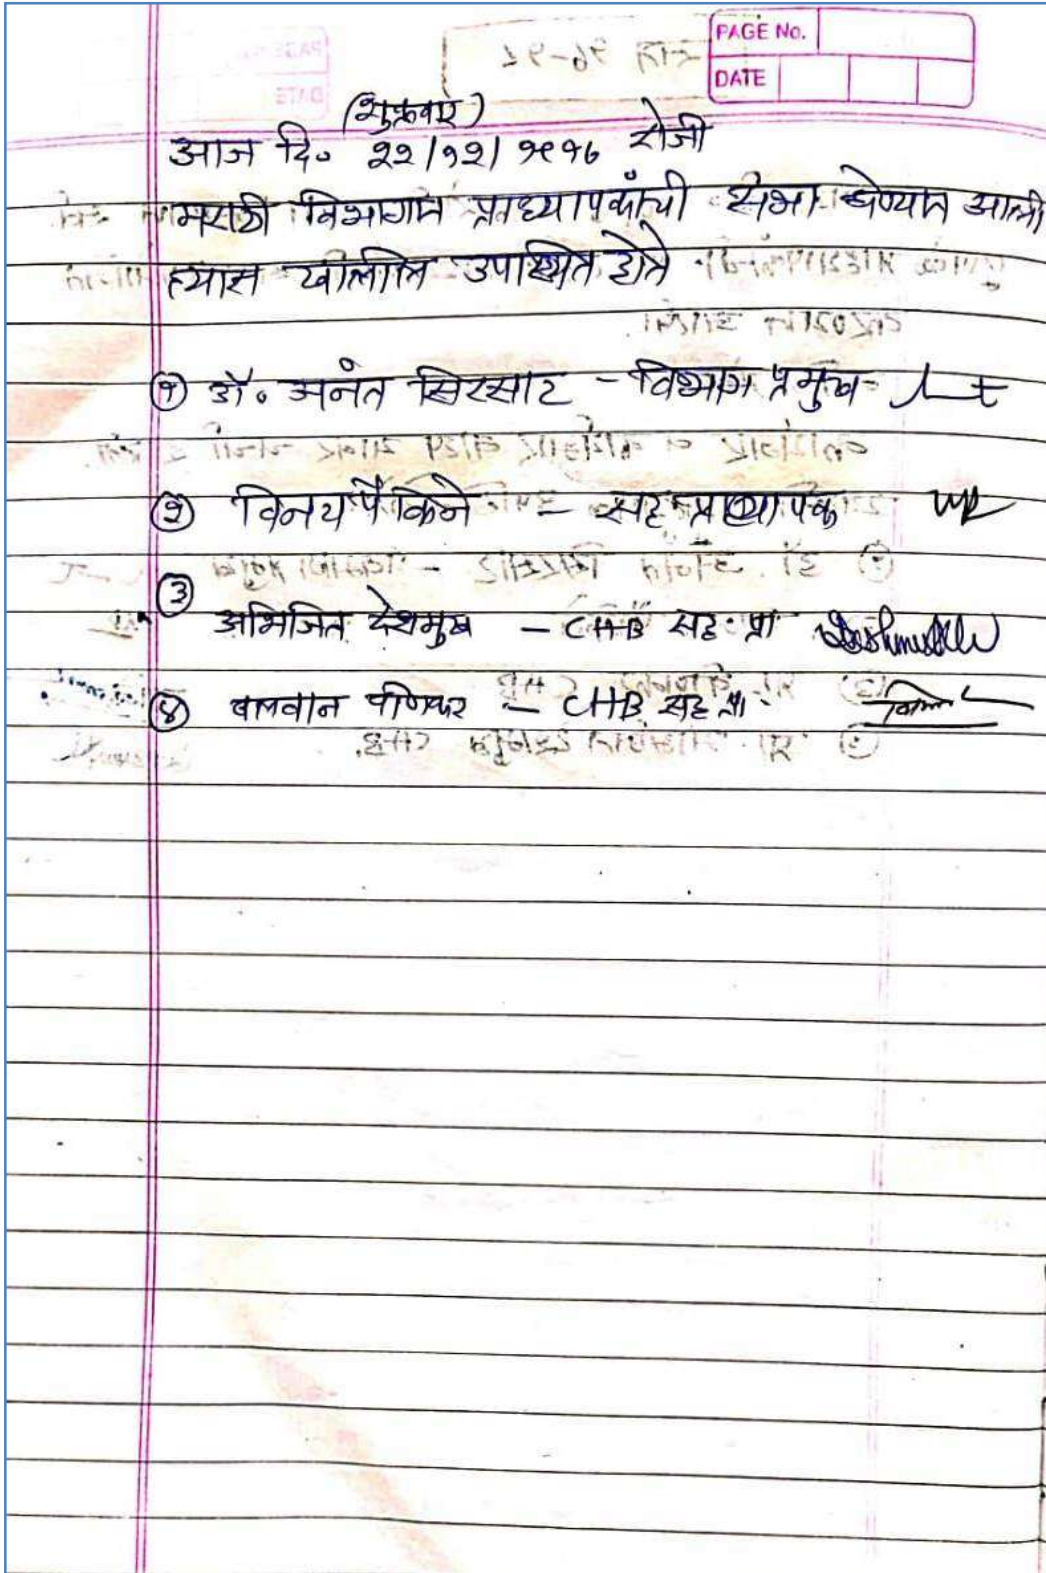 PAGE No.
DATE
(शुक्रवार)
आज दि. २२/१२/२०१७ रोजी
मराठी विभागात प्राध्यापकांची सभा घेण्यात आली
त्यास खालील उपस्थित होते
① डॉ. अनंत सिरसाट - विभाग प्रमुख
② विनय पैकिने - सह प्राध्यापक
③
अभिजित देशमुख - CHB सह. प्रा Deshmukh
④ बालवान CHB सह प्रा.